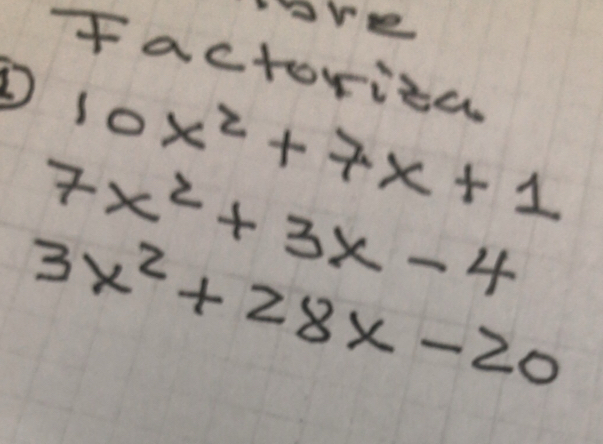 Factoriza
1) 10x² + 7x + 1
7x² + 3x - 4
3x² + 28x - 20